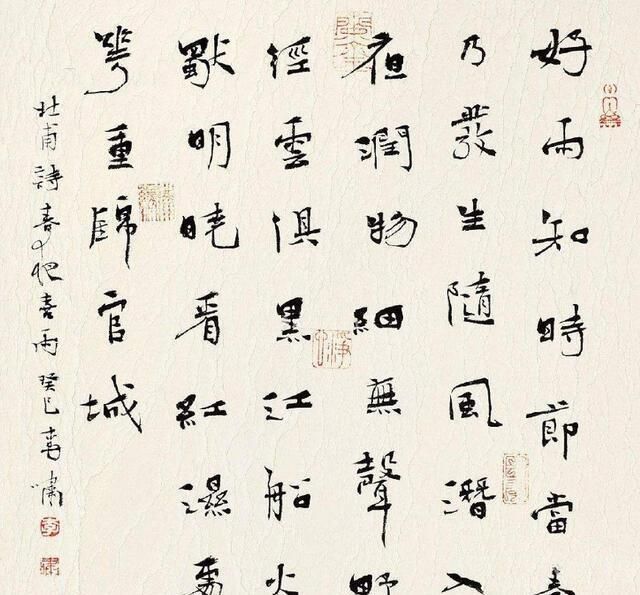 好雨知時節當春
乃發生隨風潛入
夜潤物細無聲野
徑雲俱黑江船火
獨明曉看紅濕處
花重錦官城
杜甫詩春夜喜雨癸巳李嘯